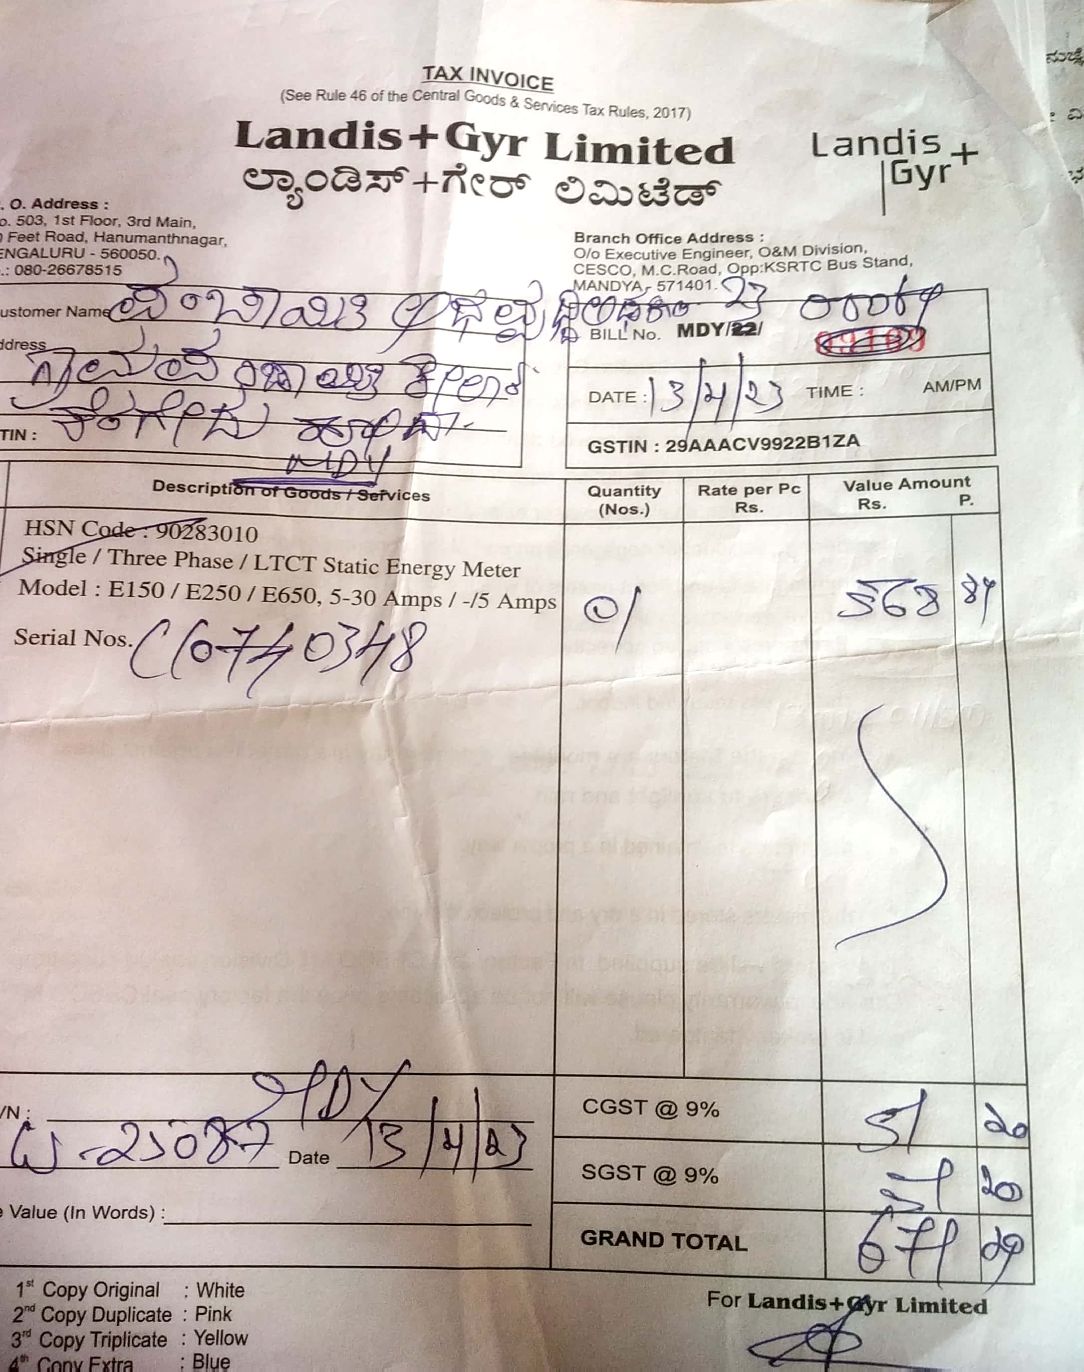 TAX INVOICE
(See Rule 46 of the Central Goods & Services Tax Rules, 2017)
Landis+Gyr Limited
ಲ್ಯಾಂಡಿಸ್+ಗೇರ್ ಲಿಮಿಟೆಡ್
Landis
Gyr+
. O. Address :
o. 503, 1st Floor, 3rd Main,
Feet Road, Hanumanthnagar,
ENGALURU - 560050.
.: 080-26678515
Branch Office Address :
O/o Executive Engineer, O&M Division,
CESCO, M.C.Road, Opp:KSRTC Bus Stand,
MANDYA - 571401.
ustomer Name
ddress
TIN :
MDY
23
BILL No. MDY/22/
DATE : 13/4/23 TIME : AM/PM
GSTIN : 29AAACV9922B1ZA
Description of Goods / Services
Quantity (Nos.)
Rate per Pc Rs.
Value Amount
Rs. P.
HSN Code : 90283010
Single / Three Phase / LTCT Static Energy Meter
Model : E150 / E250 / E650, 5-30 Amps / -/5 Amps
01
568 89
Serial Nos.
/N :
MDY
Date 13/4/23
CGST @ 9% 51 20
SGST @ 9% 51 20
Value (In Words) :
GRAND TOTAL 671 29
1st Copy Original : White
2nd Copy Duplicate : Pink
3rd Copy Triplicate : Yellow
4th Copy Extra : Blue
For Landis+Gyr Limited